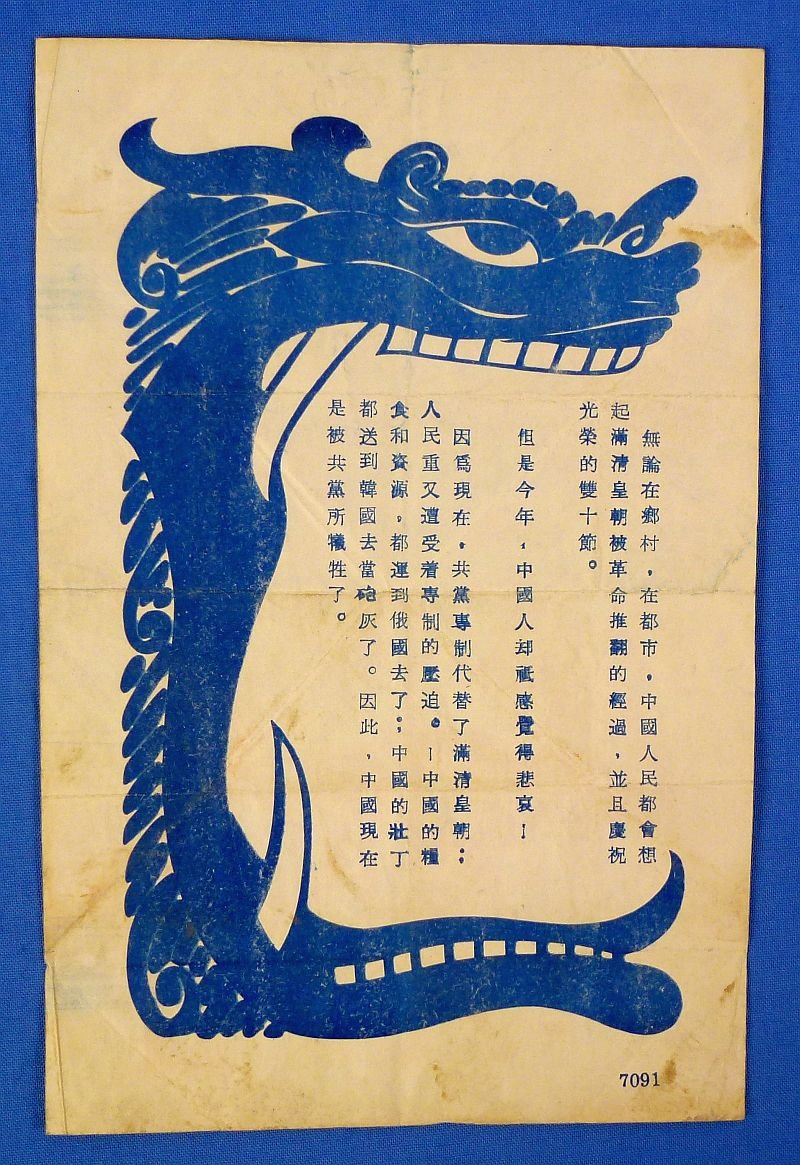 無論在鄉村，在都市，中國人民都會想
起滿清皇朝被革命推翻的經過，並且慶祝
光榮的雙十節。
但是今年，中國人却祗感覺得悲哀！
因爲現在，共黨專制代替了滿清皇朝；
人民重又遭受着專制的壓迫。—中國的糧
食和資源，都運到俄國去了；中國的壯丁
都送到韓國去當砲灰了。因此，中國現在
是被共黨所犧牲了。
7091